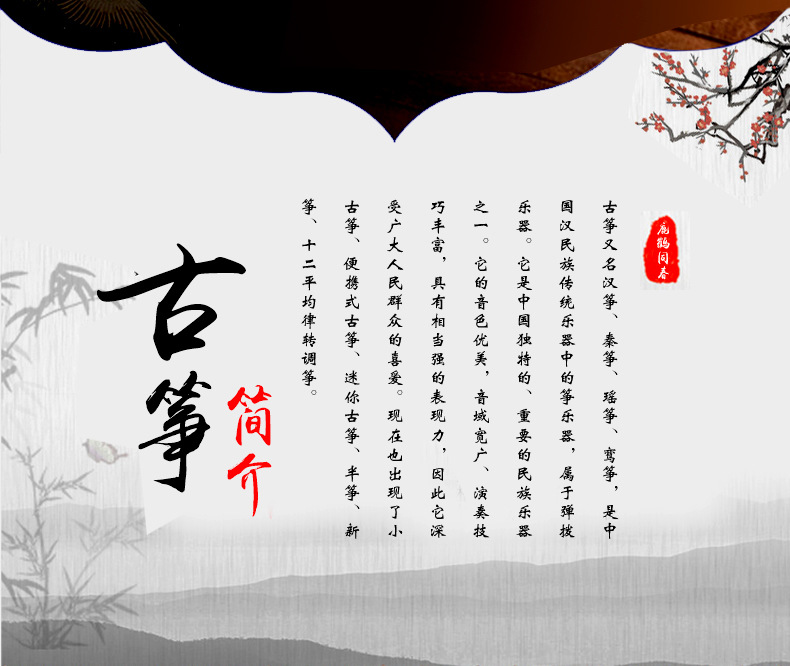 鹿鹤同春
古筝又名汉筝、秦筝、瑶筝、鸾筝，是中
国汉民族传统乐器中的筝乐器，属于弹拨
乐器。它是中国独特的、重要的民族乐器
之一。它的音色优美，音域宽广、演奏技
巧丰富，具有相当强的表现力，因此它深
受广大人民群众的喜爱。现在也出现了小
古筝、便携式古筝、迷你古筝、半筝、新
筝、十二平均律转调筝。
古筝
简介